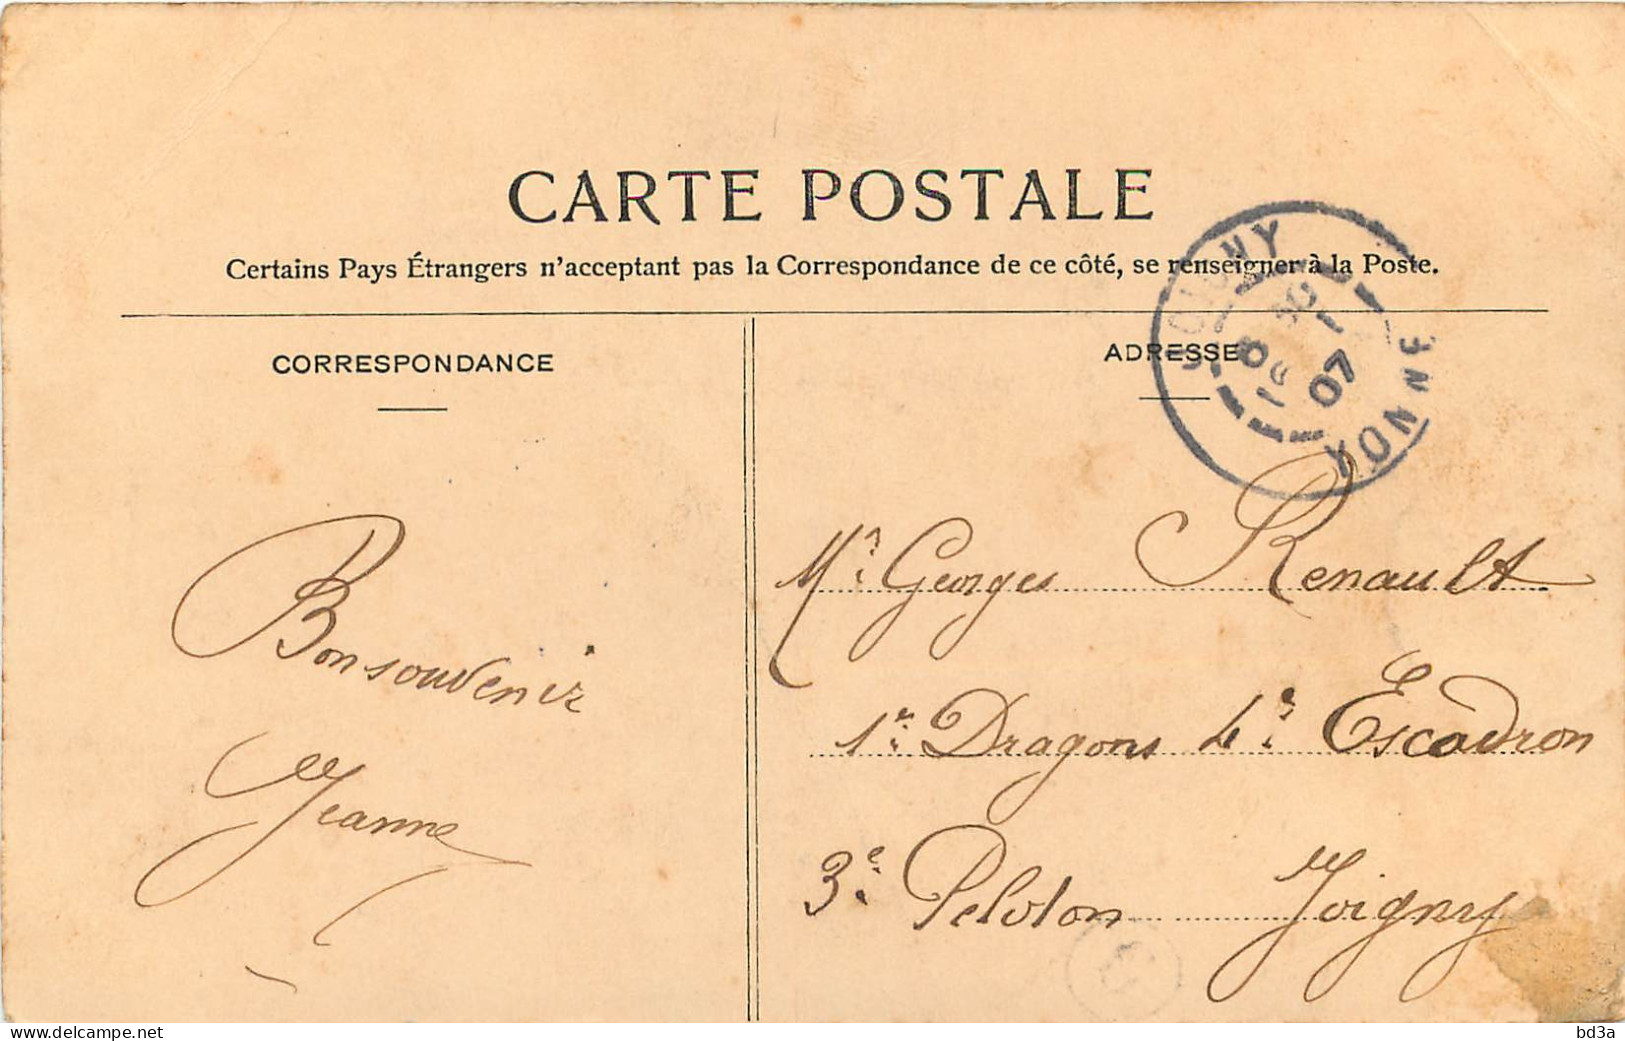 CARTE POSTALE
Certains Pays Étrangers n'acceptant pas la Correspondance de ce côté, se renseigner à la Poste.
CORRESPONDANCE
ADRESSE
JOIGNY
YONNE
07
Bon souvenir
Jeanne
Mr. Georges Renault
1er. Dragons 4e. Escadron
3e. Peloton Joigny
www.delcampe.net
bd3a